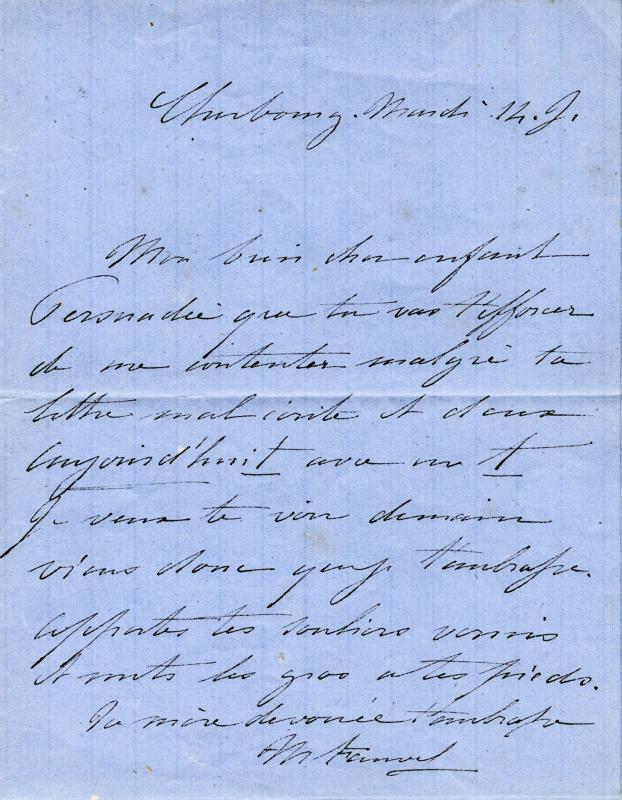 Cherbourg. Mardi 14. J.
Mon bien cher enfant
Persuadée que tu vas t'efforcer
de me contenter malgré ta
lettre mal écrite et deux
aujourd'huit avec un t
Je veux te voir demain
viens donc que je t'embrasse.
apportes tes souliers vernis
et mets les gros a tes pieds.
Ta mère dévouée t'embrasse